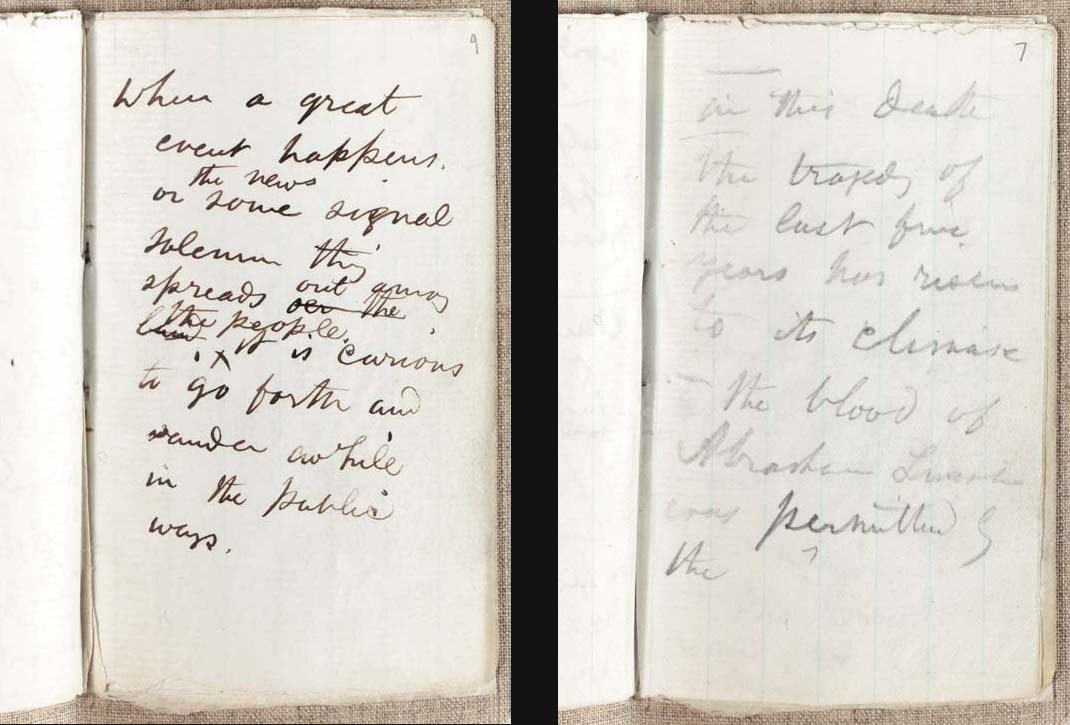 9
When a great
event happens,
the news
or some signal
solemn thing
spreads out among
over the
land the people,
it is curious
to go forth and
wander awhile
in the public
ways.
7
in this death
the tragedy of
the last five
years has risen
to its climax
the blood of
Abraham Lincoln
was permitted by
the